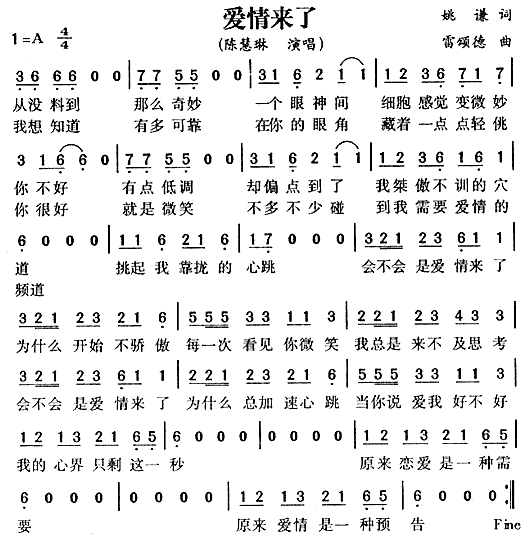 爱情来了
姚 谦 词
1=A 4/4 (陈慧琳 演唱) 雷颂德 曲
3 6 6 6 0 0 | 7 7 5 5 0 0 | 3 1 6 2 1 1 | 6 7 6 7 7 1 7 |
从没料到 那么奇妙 一个眼神间 细胞感觉变微妙
我想知道 有多可靠 在你的眼角 藏着一点点轻佻
3 1 6 6 0 | 5 5 5 5 0 0 | 3 1 6 2 1 1 | 1 6 1 6 1 6 1 |
你不好 有点低调 却偏点到了 我桀傲不训的穴
你很好 就是微笑 不多不少碰 到我需要爱情的
6 0 0 0 | 1 1 6 1 2 1 6 | 1 7 0 0 0 | 3 2 2 2 3 6 1 1 |
道 挑起我靠拢的心跳 会不会是爱情来了
频道
3 2 1 2 3 2 1 6 | 5 5 5 5 3 2 3 3 | 3 2 1 2 3 2 1 6 |
为什么开始不骄傲 每一次看见你微笑 我总是来不及思考
3 2 1 2 3 2 1 6 | 5 5 5 2 3 2 1 6 | 5 5 5 5 3 1 1 3 |
会不会是爱情来了 为什么总加速心跳 当你说爱我好不好
1 2 1 3 2 1 6 5 | 6 0 0 0 | 0 0 0 0 | 1 2 1 3 2 1 6 5 |
我的心界只剩这一秒 原来恋爱是一种需
6 0 0 0 | 0 0 0 0 | 1 2 1 3 2 1 6 5 | 6 0 0 0 :‖
要 原来爱情是一种预告 Fine